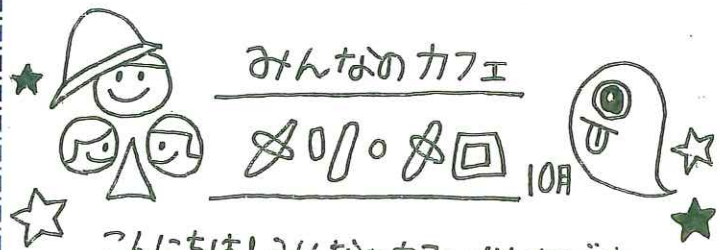 みんなのカフェ
メリル・メロ
10月
こんにちは!みんなのカフェ